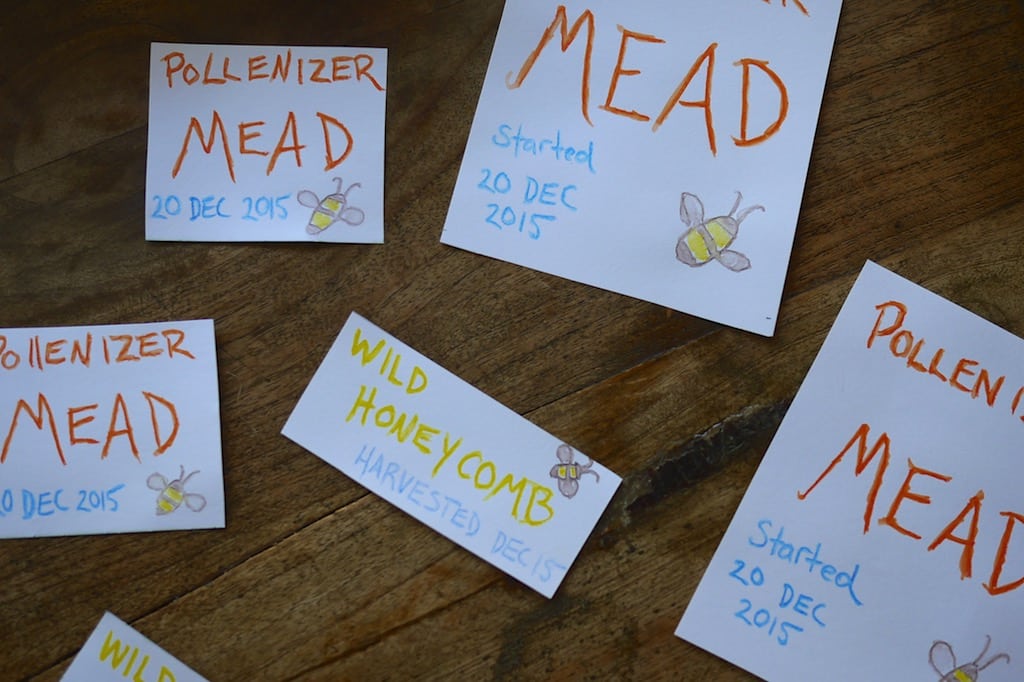 POLLENIZER
MEAD
20 DEC 2015
MEAD
Started
20 DEC
2015
POllENIZER
MEAD
20 DEC 2015
WILD
HONEYCOMB
HARVESTED DEC 15
POLLENI
MEAD
Started
20 DEC
2015
WILD